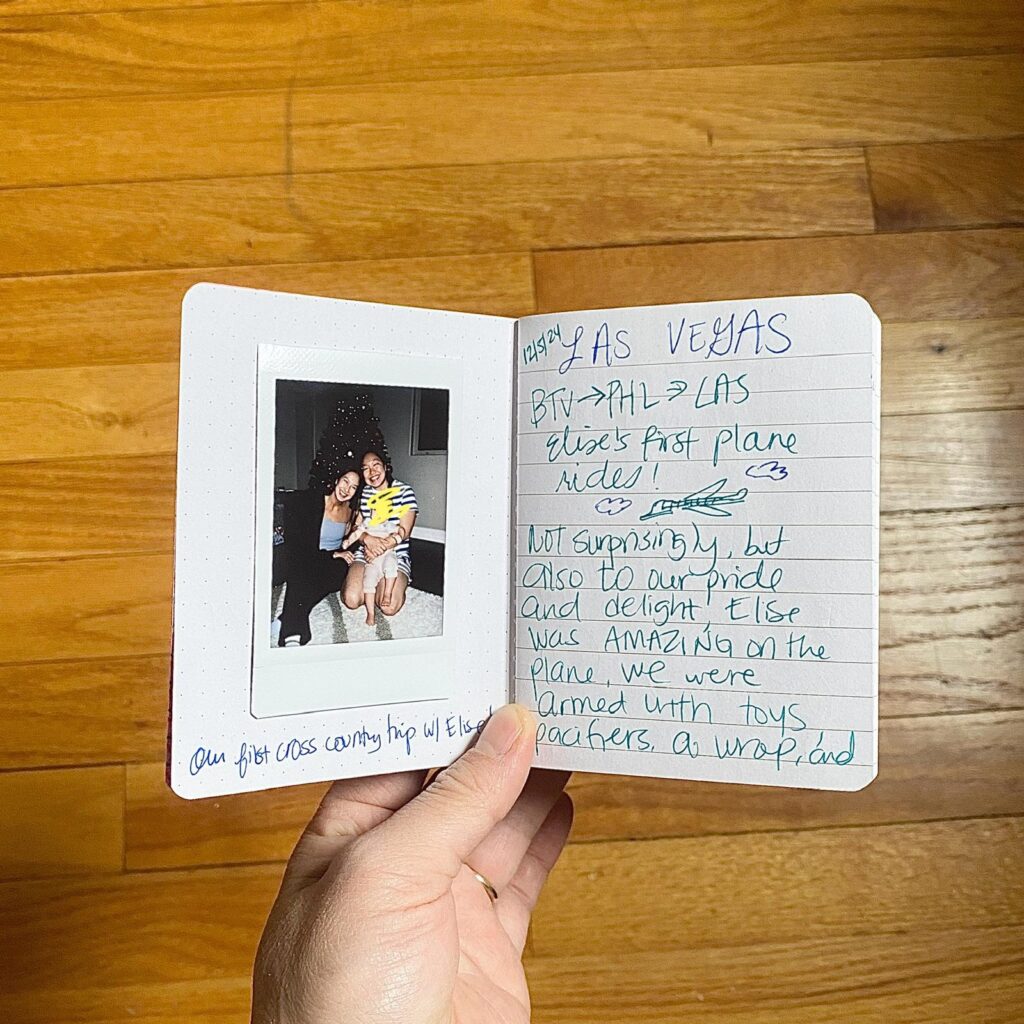 Our first cross country trip w/ Elise
12/5/24 LAS VEGAS
BTV→PHL→LAS
Elise's first plane
rides!
Not surprisingly, but
also to our pride
and delight, Elise
was AMAZING on the
plane, we were
armed with toys
pacifiers, a wrap, and